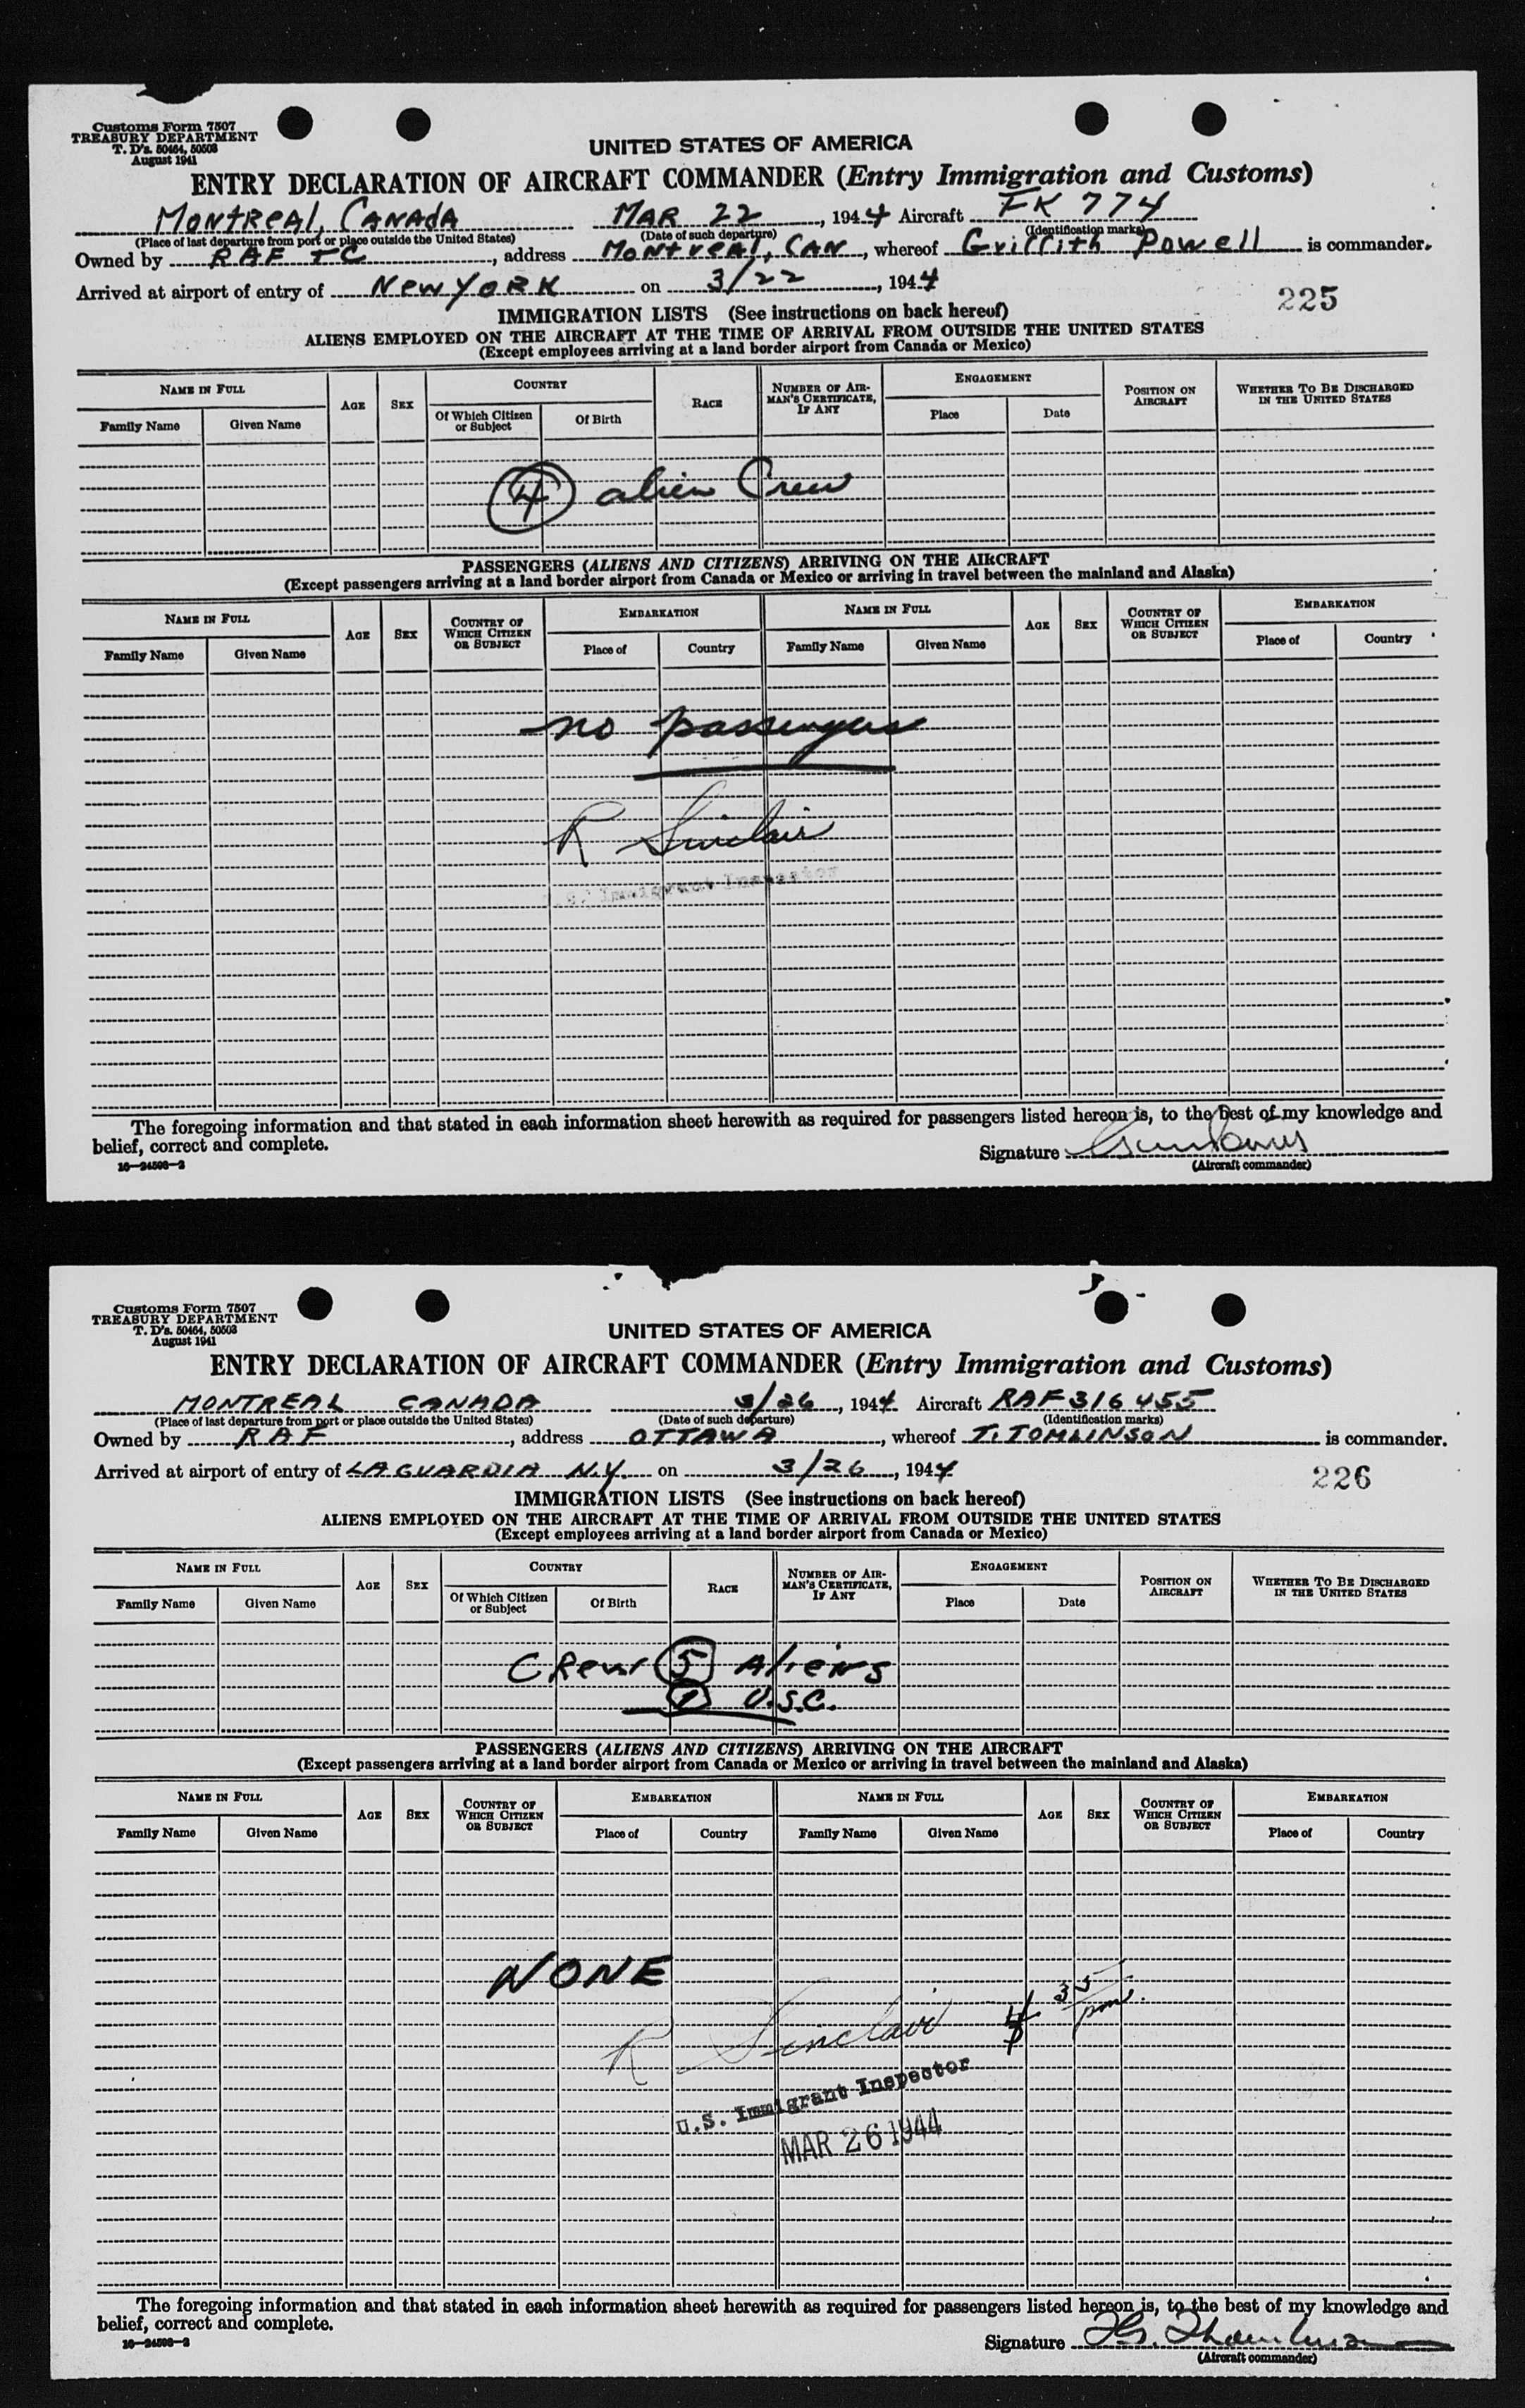 Customs Form 7507
TREASURY DEPARTMENT
T. D's. 50464, 50503
August 1941
UNITED STATES OF AMERICA
ENTRY DECLARATION OF AIRCRAFT COMMANDER (Entry Immigration and Customs)
Montreal, Canada Mar 22, 1944 Aircraft FK 774
(Place of last departure from port or place outside the United States) (Date of such departure) (Identification marks)
Owned by RAF TC, address Montreal, Can, whereof Griffith Powell is commander.
Arrived at airport of entry of New York on 3/22, 1944
225
IMMIGRATION LISTS (See instructions on back hereof)
ALIENS EMPLOYED ON THE AIRCRAFT AT THE TIME OF ARRIVAL FROM OUTSIDE THE UNITED STATES
(Except employees arriving at a land border airport from Canada or Mexico)
NAME IN FULL AGE SEX COUNTRY RACE NUMBER OF AIRMAN'S CERTIFICATE, IF ANY ENGAGEMENT POSITION ON AIRCRAFT WHETHER TO BE DISCHARGED IN THE UNITED STATES
Family Name Given Name Of Which Citizen or Subject Of Birth Place Date
4 alien Crew
PASSENGERS (ALIENS AND CITIZENS) ARRIVING ON THE AIRCRAFT
(Except passengers arriving at a land border airport from Canada or Mexico or arriving in travel between the mainland and Alaska)
NAME IN FULL AGE SEX COUNTRY OF WHICH CITIZEN OR SUBJECT EMBARKATION NAME IN FULL AGE SEX COUNTRY OF WHICH CITIZEN OR SUBJECT EMBARKATION
Family Name Given Name Place of Country Family Name Given Name Place of Country
no passengers
R Sinclair
Immigrant Inspector
The foregoing information and that stated in each information sheet herewith as required for passengers listed hereon is, to the best of my knowledge and
belief, correct and complete.
Signature
16—24508-2 (Aircraft commander)
Customs Form 7507
TREASURY DEPARTMENT
T. D's. 50464, 50503
August 1941
UNITED STATES OF AMERICA
ENTRY DECLARATION OF AIRCRAFT COMMANDER (Entry Immigration and Customs)
MONTREAL CANADA 3/26, 1944 Aircraft RAF 316455
(Place of last departure from port or place outside the United States) (Date of such departure) (Identification marks)
Owned by RAF, address OTTAWA, whereof T. TOMLINSON is commander.
Arrived at airport of entry of LAGUARDIA N.Y. on 3/26, 1944
226
IMMIGRATION LISTS (See instructions on back hereof)
ALIENS EMPLOYED ON THE AIRCRAFT AT THE TIME OF ARRIVAL FROM OUTSIDE THE UNITED STATES
(Except employees arriving at a land border airport from Canada or Mexico)
NAME IN FULL AGE SEX COUNTRY RACE NUMBER OF AIRMAN'S CERTIFICATE, IF ANY ENGAGEMENT POSITION ON AIRCRAFT WHETHER TO BE DISCHARGED IN THE UNITED STATES
Family Name Given Name Of Which Citizen or Subject Of Birth Place Date
Crew 5 Aliens
1 U.S.C.
PASSENGERS (ALIENS AND CITIZENS) ARRIVING ON THE AIRCRAFT
(Except passengers arriving at a land border airport from Canada or Mexico or arriving in travel between the mainland and Alaska)
NAME IN FULL AGE SEX COUNTRY OF WHICH CITIZEN OR SUBJECT EMBARKATION NAME IN FULL AGE SEX COUNTRY OF WHICH CITIZEN OR SUBJECT EMBARKATION
Family Name Given Name Place of Country Family Name Given Name Place of Country
NONE
R Sinclair 4 35 pm.
U.S. Immigrant Inspector
MAR 26 1944
The foregoing information and that stated in each information sheet herewith as required for passengers listed hereon is, to the best of my knowledge and
belief, correct and complete.
Signature
16—24508-2 (Aircraft commander)